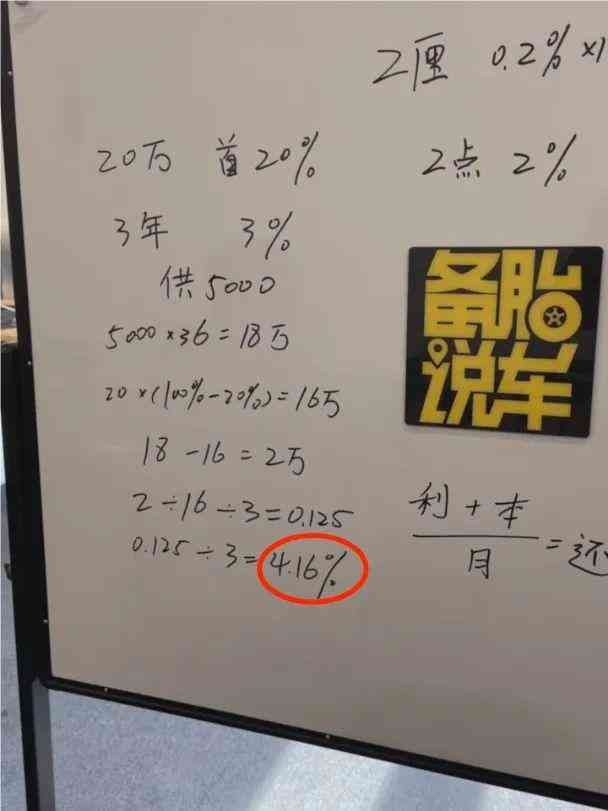 2厘 0.2% ×1
20万 首20%
2点 2%
3年 3%
供5000
5000×36=18万
20×(100%-20%)=16万
18-16=2万
2÷16÷3=0.125
0.125÷3=4.16%
备胎
说车
利+本
月
=还